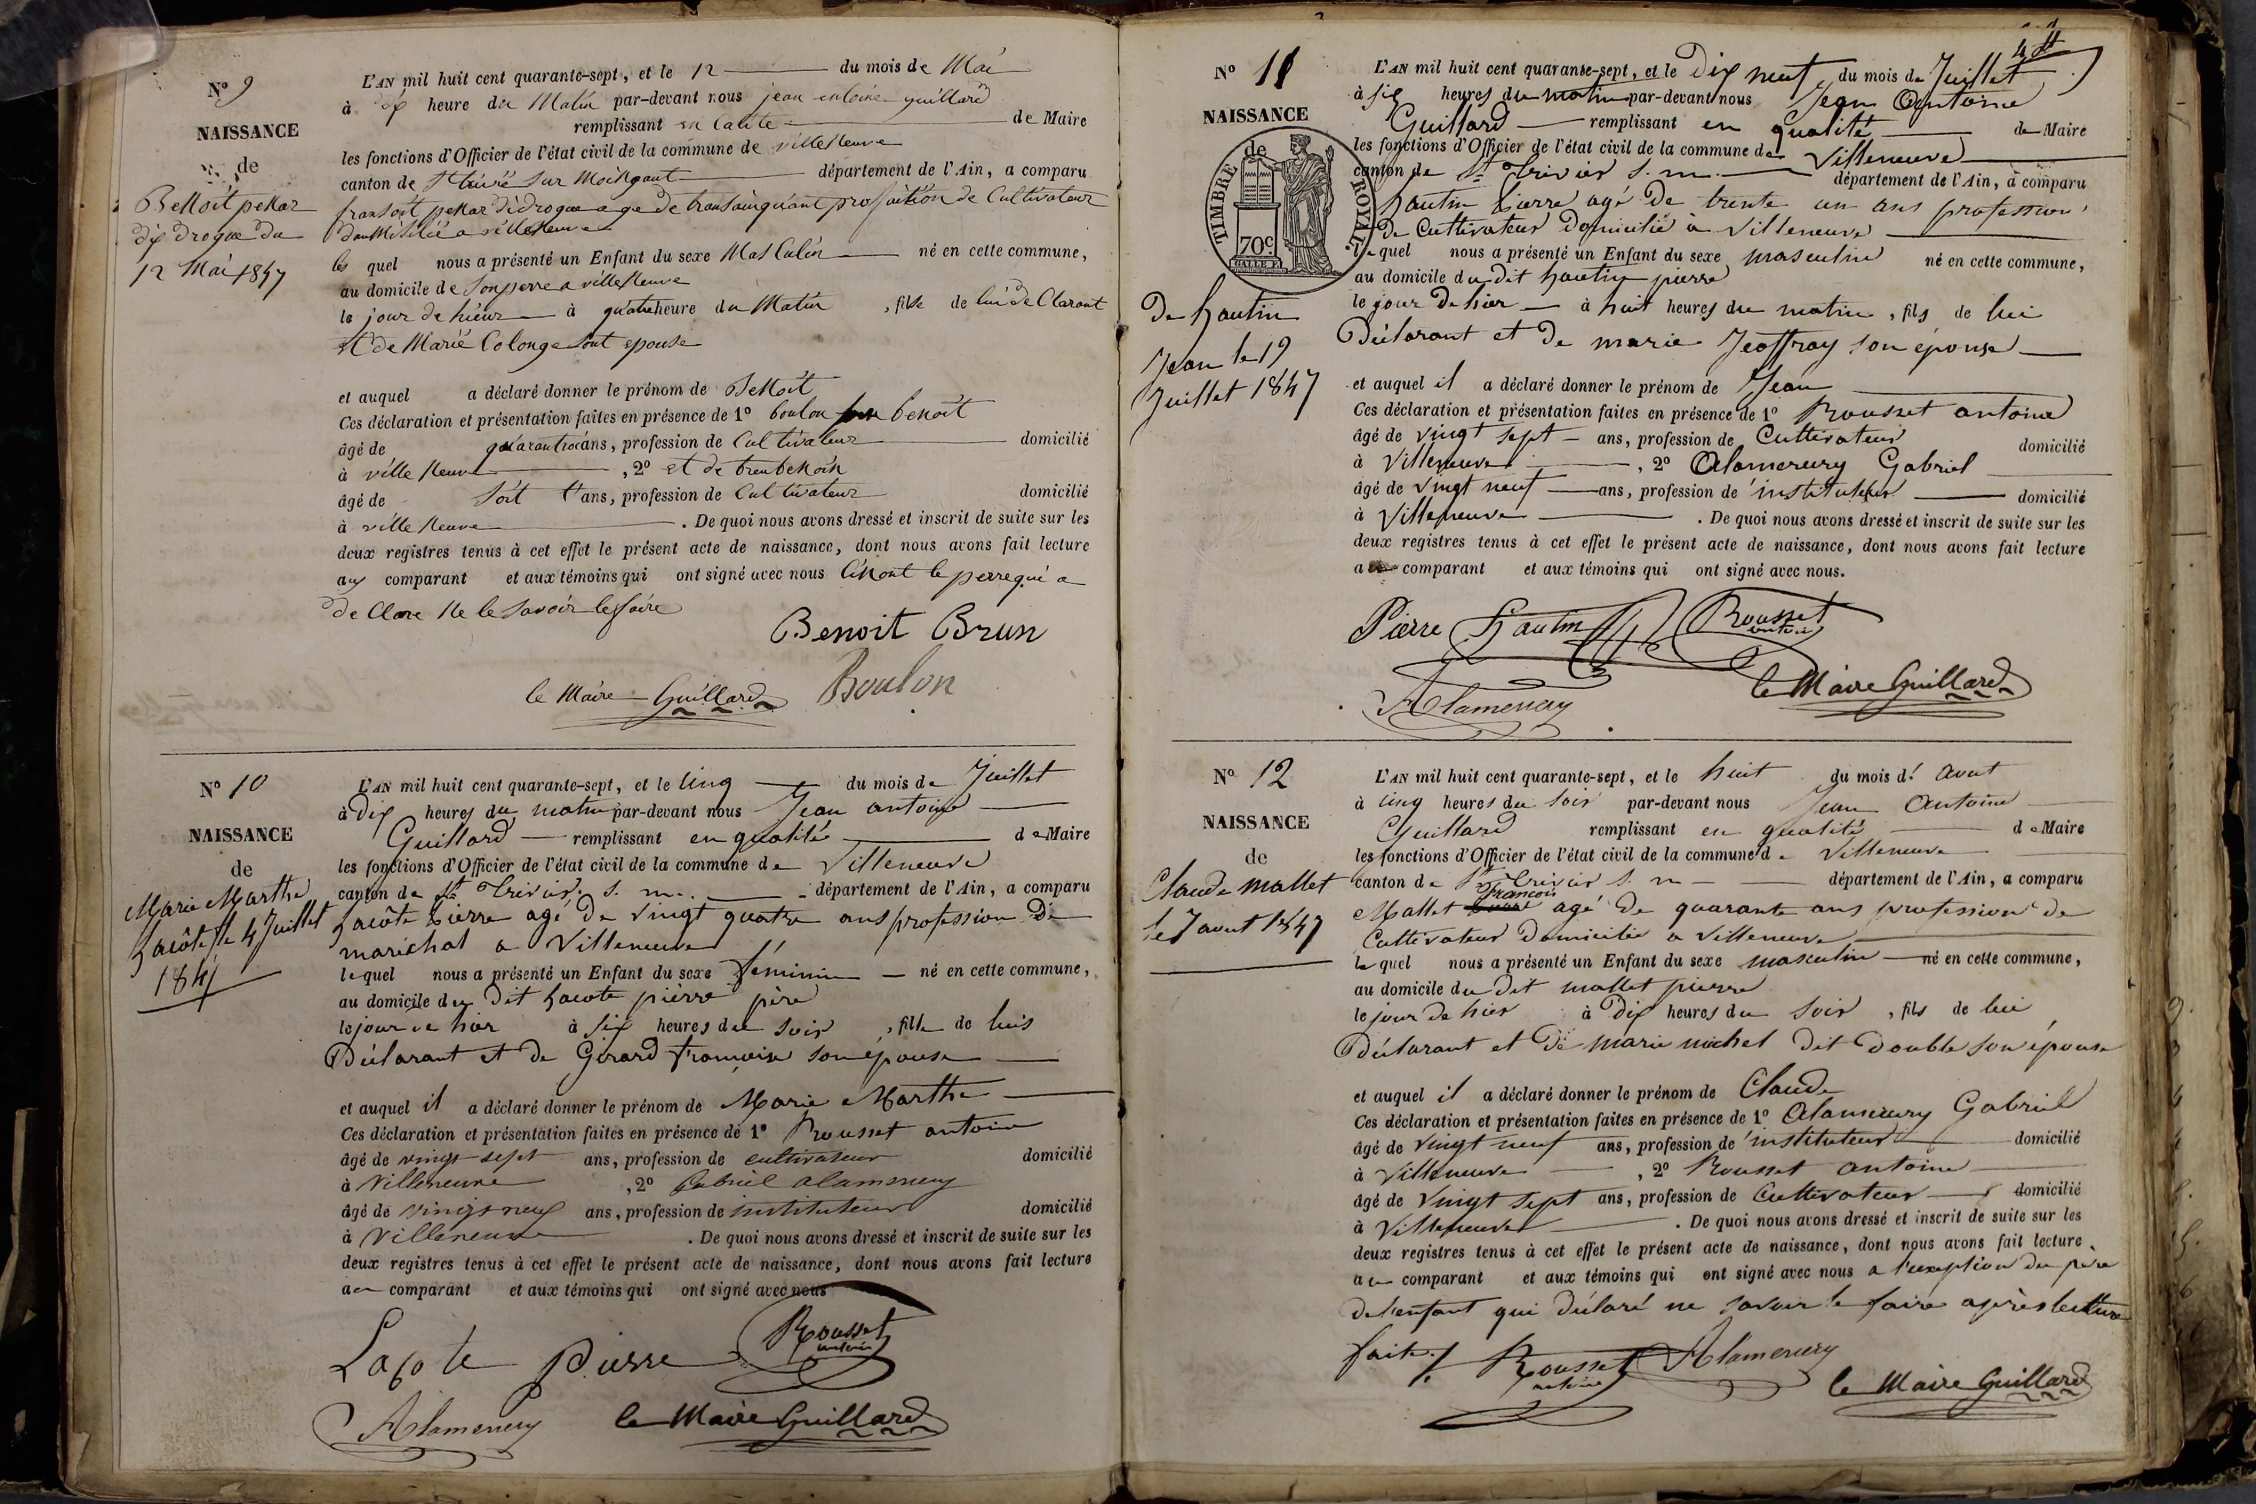 N° 9
NAISSANCE
de
Benoît
12 Mai 1847
L'AN mil huit cent quarante-sept, et le 12 du mois de Mai
à dix heure du Matin par-devant nous jean antoine guillard
remplissant en Calite de Maire
les fonctions d'Officier de l'état civil de la commune de villeneuve
canton de département de l'Ain, a comparu
de Cultivateur
a villeneuve
le quel nous a présenté un Enfant du sexe Masculin né en cette commune,
au domicile de son perre a villeneuve
le jour de hieur à quatre heure du Matin, fils de lui de Clarant
et de Marië Colonge sont epouse
et auquel a déclaré donner le prénom de Benoit
Ces déclaration et présentation faites en présence de 1° boulon benoît
âgé de ans, profession de Cultivateur domicilié
à ville neuve, 2° et de
âgé de ans, profession de Cultivateur domicilié
à ville neuve. De quoi nous avons dressé et inscrit de suite sur les
deux registres tenus à cet effet le présent acte de naissance, dont nous avons fait lecture
aux comparant et aux témoins qui ont signé avec nous le perre qui a
de Clare ne le savoir le faire
Benoit Brun
le Maire Guillard Boulon
N° 10
NAISSANCE
de
Marie Marthe
Lacôte le 4 Juillet
1847
L'AN mil huit cent quarante-sept, et le cinq du mois de Juillet
à Dix heures du matin par-devant nous Jean antoine
Guillard remplissant en qualité de Maire
les fonctions d'Officier de l'état civil de la commune de Villeneuve
canton de St Trivier s. m. département de l'Ain, a comparu
Lacôte Pierre agé de vingt quatre ans profession De
maréchal a Villeneuve
lequel nous a présenté un Enfant du sexe féminin né en cette commune,
au domicile du Dit Lacote pierre père
le jour de hier à six heures du soir, fille de lui
Déclarant et de Gérard françoise son épouse
et auquel il a déclaré donner le prénom de Marie Marthe
Ces déclaration et présentation faites en présence de 1° Rousset antoine
âgé de vingt sept ans, profession de cultivateur domicilié
à Villeneuve, 2° Gabriel alamercery
âgé de vingt neuf ans, profession de instituteur domicilié
à Villeneuve. De quoi nous avons dressé et inscrit de suite sur les
deux registres tenus à cet effet le présent acte de naissance, dont nous avons fait lecture
au comparant et aux témoins qui ont signé avec nous
Lacote Pierre Rousset antoine
Alamercery le Maire Guillard
N° 11
NAISSANCE
de
TIMBRE ROYAL
70c.
De hautin
Jean le 19
Juillet 1847
L'AN mil huit cent quarante-sept, et le Dix neuf du mois de Juillet
à six heures du matin par-devant nous Jean Antoine
Guillard remplissant en qualité de Maire
les fonctions d'Officier de l'état civil de la commune de Villeneuve
canton de St Trivier s. m. département de l'Ain, a comparu
hautin Pierre agé De trente un ans profession
de Cultivateur Domicilié à Villeneuve
le quel nous a présenté un Enfant du sexe masculin né en cette commune,
au domicile du dit hautin pierre
le jour De hier à huit heures du matin, fils de lui
Déclarant et De marie Jeoffray son épouse
et auquel il a déclaré donner le prénom de Jean
Ces déclaration et présentation faites en présence de 1° Rousset antoine
âgé de vingt sept ans, profession de Cultivateur domicilié
à Villeneuve, 2° Alamercery Gabriel
âgé de vingt neuf ans, profession de instituteur domicilié
à Villeneuve. De quoi nous avons dressé et inscrit de suite sur les
deux registres tenus à cet effet le présent acte de naissance, dont nous avons fait lecture
au comparant et aux témoins qui ont signé avec nous.
Pierre Hautin Rousset antoine
le Maire Guillard
Alamercery
N° 12
NAISSANCE
de
Claude mallet
le 7 aout 1847
L'AN mil huit cent quarante-sept, et le huit du mois d' aout
à cinq heures du soir par-devant nous Jean Antoine
Guillard remplissant en qualité de Maire
les fonctions d'Officier de l'état civil de la commune de Villeneuve
canton de St Trivier s. m département de l'Ain, a comparu
Mallet François agé De quarante ans profession de
Cultivateur Domicilié a Villeneuve
le quel nous a présenté un Enfant du sexe masculin né en cette commune,
au domicile du dit mallet pierre
le jour De hier à Dix heures du soir, fils de lui
Déclarant et De marie michel dit Double son épouse
et auquel il a déclaré donner le prénom de Claude
Ces déclaration et présentation faites en présence de 1° Alamercery Gabriel
âgé de vingt neuf ans, profession de instituteur domicilié
à Villeneuve, 2° Rousset antoine
âgé de vingt sept ans, profession de Cultivateur domicilié
à Villeneuve. De quoi nous avons dressé et inscrit de suite sur les
deux registres tenus à cet effet le présent acte de naissance, dont nous avons fait lecture
au comparant et aux témoins qui ont signé avec nous a l'exception du père
de l'enfant qui déclaré ne savoir le faire après lecture
faite. Rousset antoine Alamercery
le Maire Guillard